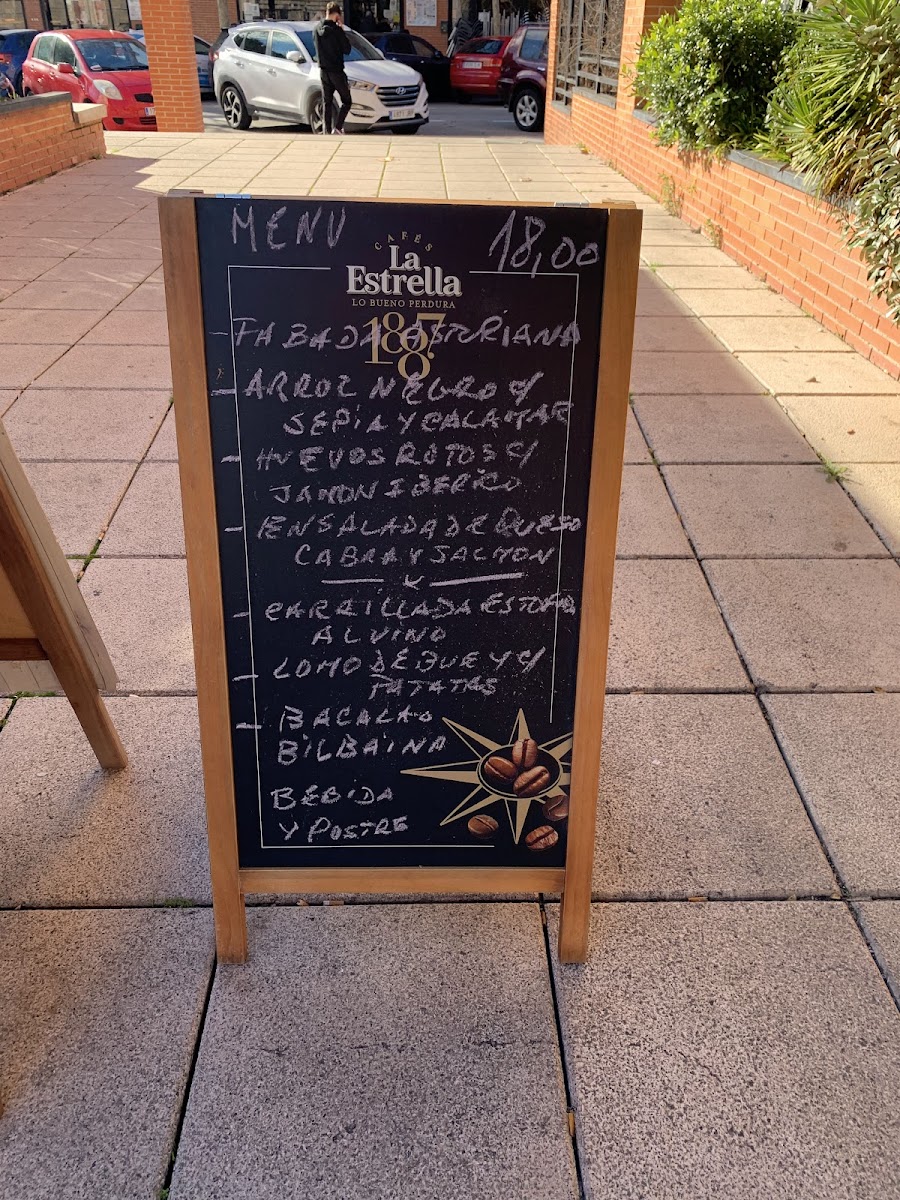 MENU 18,00
CAFÉS
La
Estrella
LO BUENO PERDURA
1887
- FABADA ASTURIANA
- ARROZ NEGRO C/
SEPIA Y CALAMAR
- HUEVOS ROTOS C/
JAMON IBERICO
- ENSALADA DE QUESO
CABRA Y SALMON
- CARRILLADA ESTOFA
AL VINO
- LOMO DE BUEY C/
PATATAS
- BACALAO
BILBAINA
BEBIDA
Y POSTRE